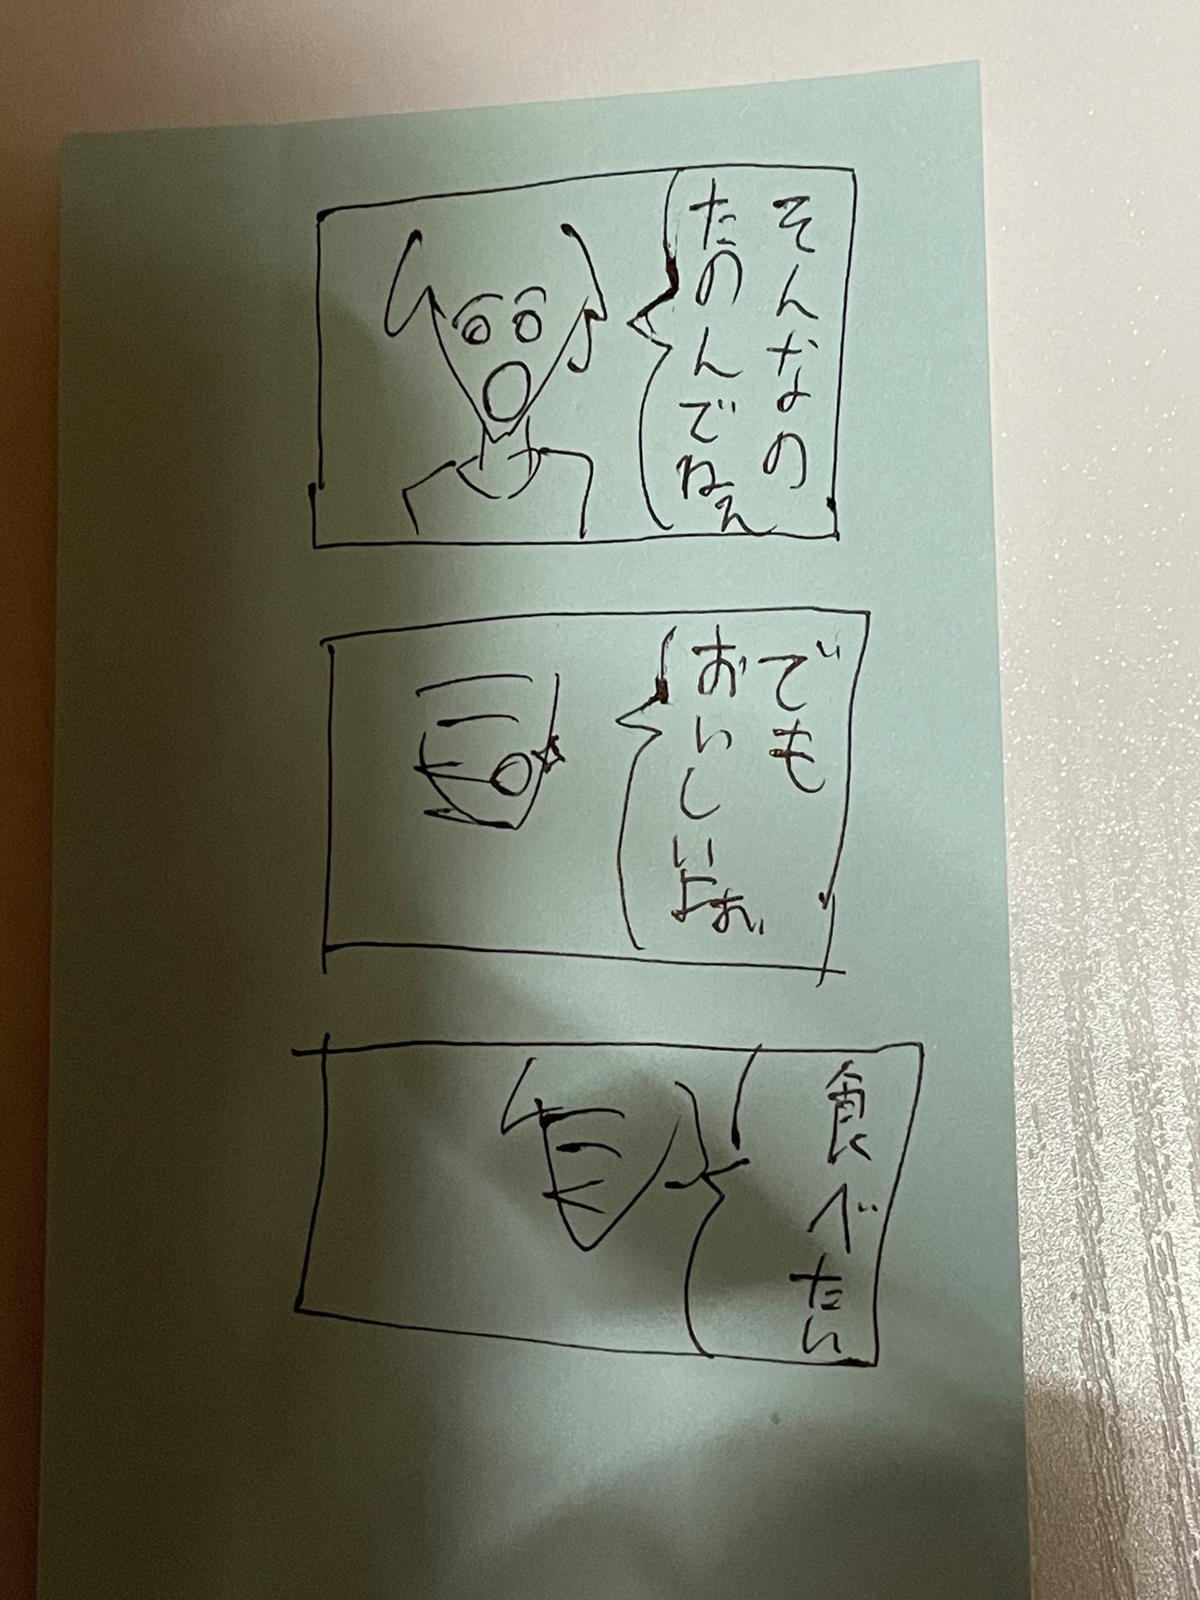 そんなの
たのんでねえ
でも
おいしいよお
食べたい